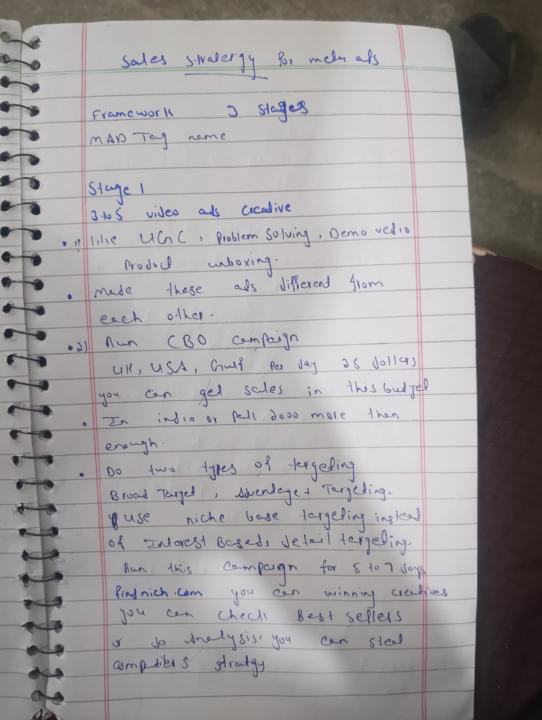 Sales stratergy for meta ads
Framework 3 stages
MAD Tag name
Stage 1
3 to 5 video ads creative
1) like UGC, Problem Solving, Demo vedio
Product unboxing.
• made these ads different from
each other.
• 2) Run CBO campaign
UK, USA, Gulf Per day 25 dollars
you can get sales in this budget
• In india or Pak 2000 more than
enough.
• Do two types of tergeting
Broad Target, Advantage+ Targeting.
use niche base targeting instead
of Interest Based, detail targeting.
Run this campaign for 5 to 7 days
you can winning creatives
you can check Best sellers
or do analysis, you can steal
stratgy